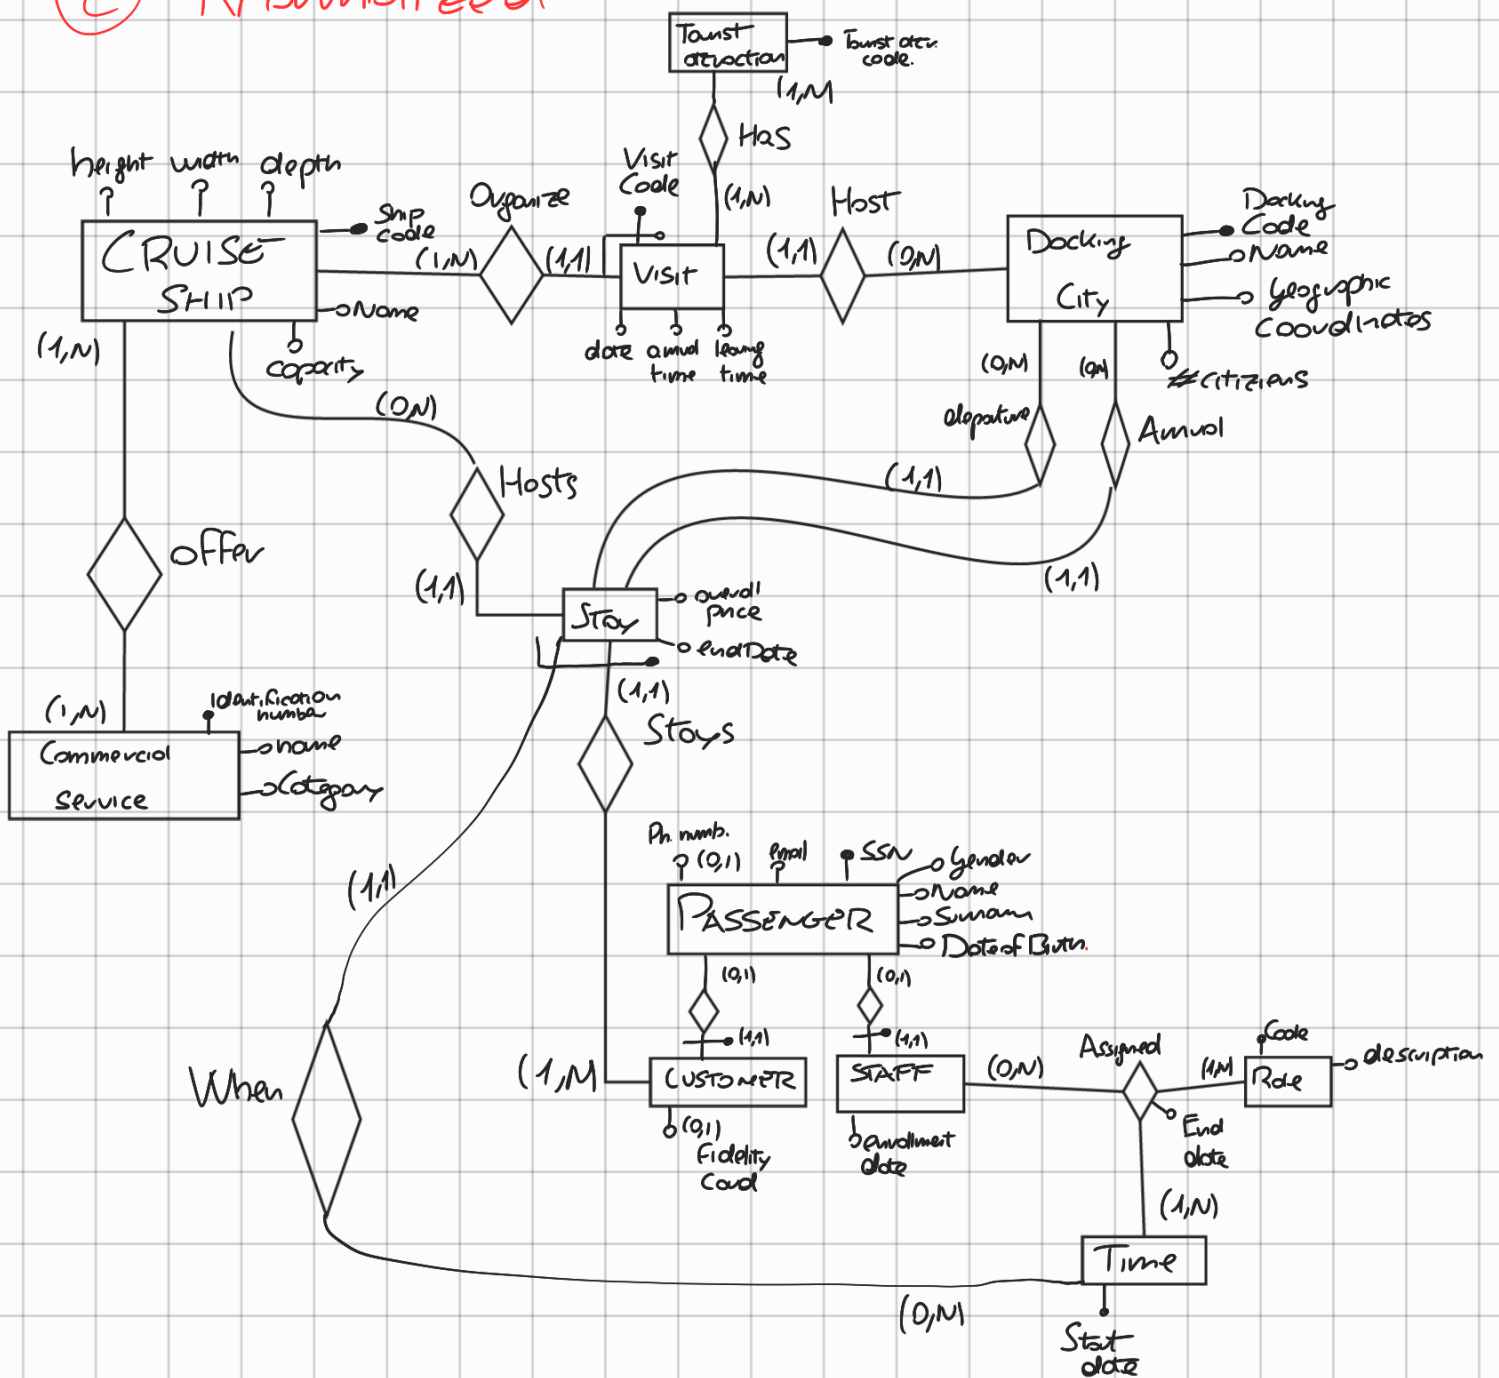 Tourist
attraction
Tourist attr.
code.
(1,N)
Has
(1,N)
height width depth
Ship
code
CRUISE
SHIP
Name
capacity
Organize
(1,N)
(1,1)
Visit
Code
Visit
date
arrival
time
leaving
time
Host
(1,1)
(0,N)
Docking
City
Docking
Code
Name
Geographic
Coordinates
#citizens
(1,N)
(0,N)
Hosts
(1,1)
(0,N)
(0,N)
departure
Arrival
(1,1)
(1,1)
offer
(1,N)
Identification
number
Commercial
Service
name
Category
Stay
overall
price
endDate
(1,1)
Stays
(1,1)
When
Ph. numb.
(0,1)
email
SSN
Gender
Name
Surnam
Date of Birth.
PASSENGER
(0,1)
(0,1)
(1,1)
(1,1)
(1,N)
CUSTOMER
(0,1)
Fidelity
Card
STAFF
enrollment
date
(0,N)
Assigned
(1,N)
End
date
Code
Role
description
(1,N)
Time
(0,N)
Start
date